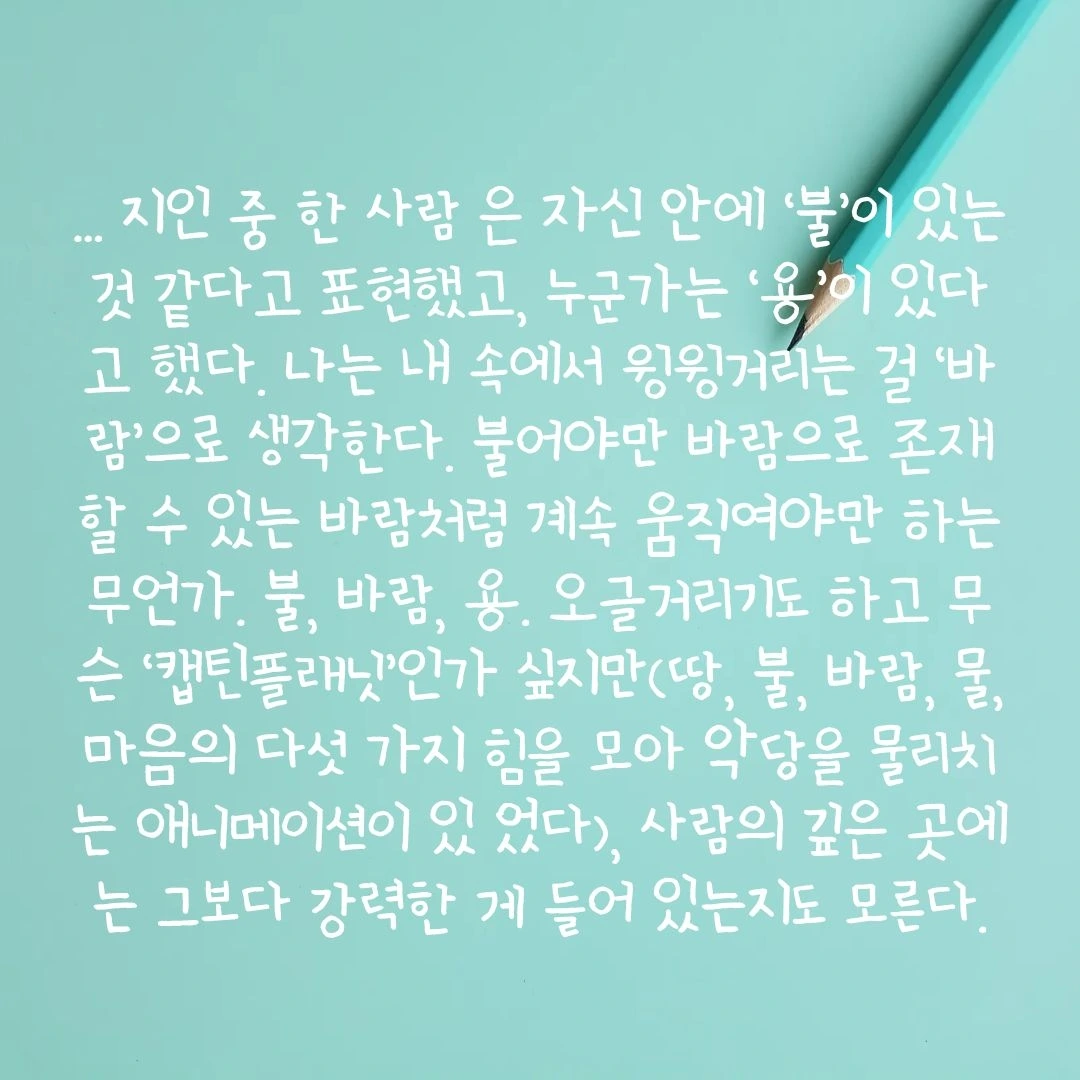 ... 지인 중 한 사람 은 자신 안에 ‘불’이 있는
것 같다고 표현했고, 누군가는 ‘용’이 있다
고 했다. 나는 내 속에서 윙윙거리는 걸 ‘바
람’으로 생각한다. 불어야만 바람으로 존재
할 수 있는 바람처럼 계속 움직여야만 하는
무언가. 불, 바람, 용. 오글거리기도 하고 무
슨 ‘캡틴플래닛’인가 싶지만(땅, 불, 바람, 물,
마음의 다섯 가지 힘을 모아 악당을 물리치
는 애니메이션이 있 었다), 사람의 깊은 곳에
는 그보다 강력한 게 들어 있는지도 모른다.